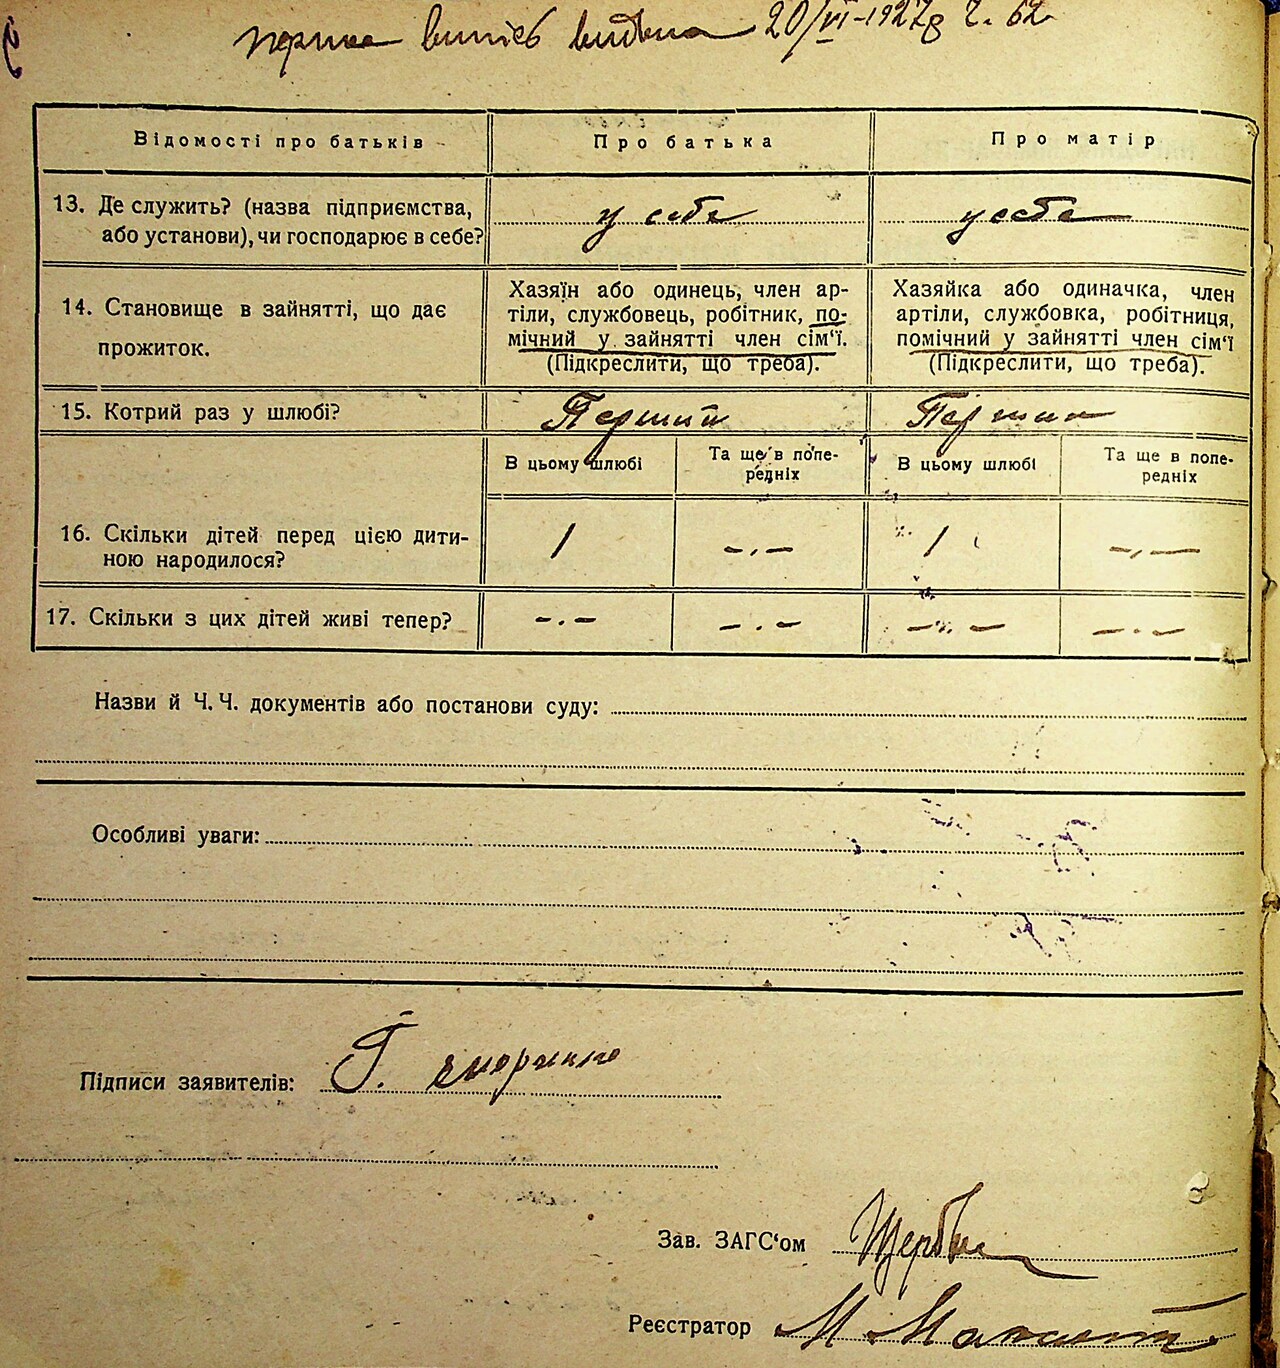 перша випись видана 20/VI-1927р Ч. 62
Відомості про батьків
Про батька
Про матір
13. Де служить? (назва підприємства,
або установи), чи господарює в себе?
у себе
у себе
14. Становище в зайнятті, що дає
прожиток.
Хазяїн або одинець, член ар-
тіли, службовець, робітник, по-
мічний у зайнятті член сім'ї.
(Підкреслити, що треба).
Хазяйка або одиначка, член
артіли, службовка, робітниця,
помічний у зайнятті член сім'ї
(Підкреслити, що треба).
15. Котрий раз у шлюбі?
Перший
Перший
В цьому шлюбі
Та ще в попе-
редніх
В цьому шлюбі
Та ще в попе-
редніх
16. Скільки дітей перед цією дити-
ною народилося?
1
-.-
1
-.-
17. Скільки з цих дітей живі тепер?
-.-
-.-
-.-
-.-
Назви й Ч. Ч. документів або постанови суду:
Особливі уваги:
Підписи заявителів:
Зав. ЗАГС'ом
Реєстратор М.